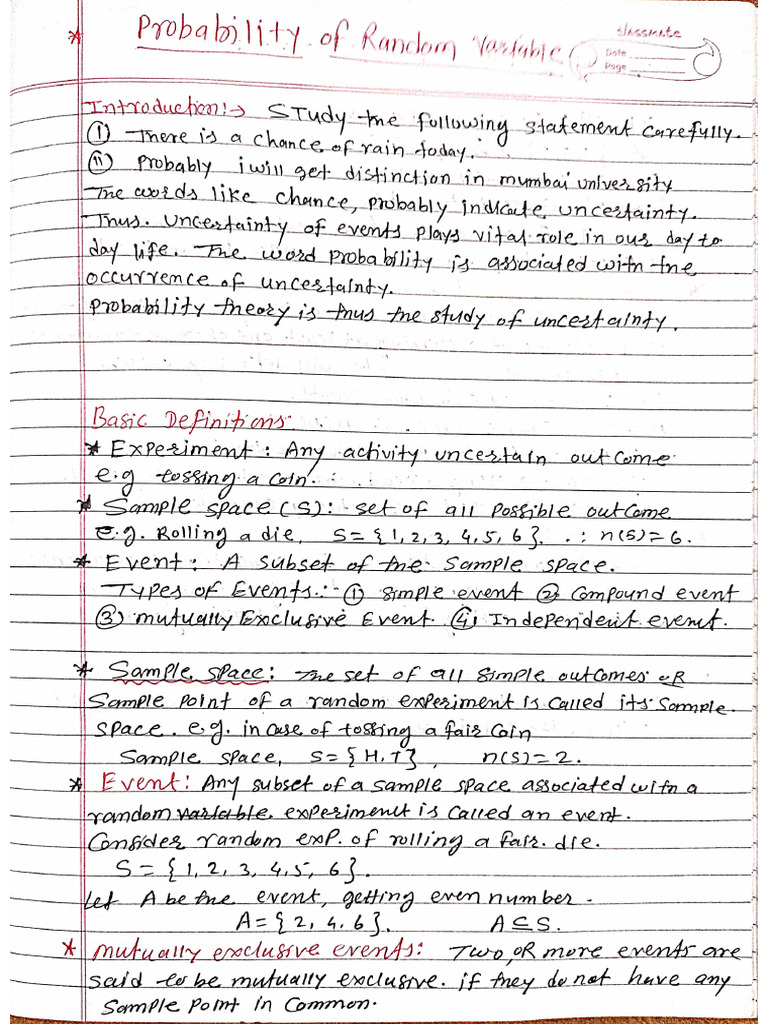 * Probability of Random Variable
classmate
Date
Page
Introduction:→ Study the following statement carefully.
(i) There is a chance of rain today.
(ii) Probably i will get distinction in mumbai university
The words like chance, probably indicate uncertainty.
Thus. Uncertainty of events plays vital role in our day to
day life. The word probability is associated with the
occurrence of uncertainty.
Probability theory is thus the study of uncertainty.
Basic Definitions
* Experiment : Any activity uncertain outcome
e.g tossing a coin.
* Sample space (S): set of all possible outcome
e.g. Rolling a die, S = {1, 2, 3, 4, 5, 6}. ∴ n(S) = 6.
* Event : A subset of the sample space.
Types of Events:- ① simple event ② Compound event
③ mutually Exclusive Event ④ Independent event.
* Sample space : The set of all simple outcomes OR
Sample point of a random experiment is called its sample
space. e.g. in case of tossing a fair Coin
Sample space, S = {H, T}, n(S) = 2.
* Event : Any subset of a sample space associated with a
random variable experiment is called an event.
Consider random exp. of rolling a fair die.
S = {1, 2, 3, 4, 5, 6}.
Let A be the event, getting even number.
A = {2, 4, 6}. A ⊆ S.
* mutually exclusive events: Two OR more events are
said to be mutually exclusive. if they do not have any
Sample Point in Common.